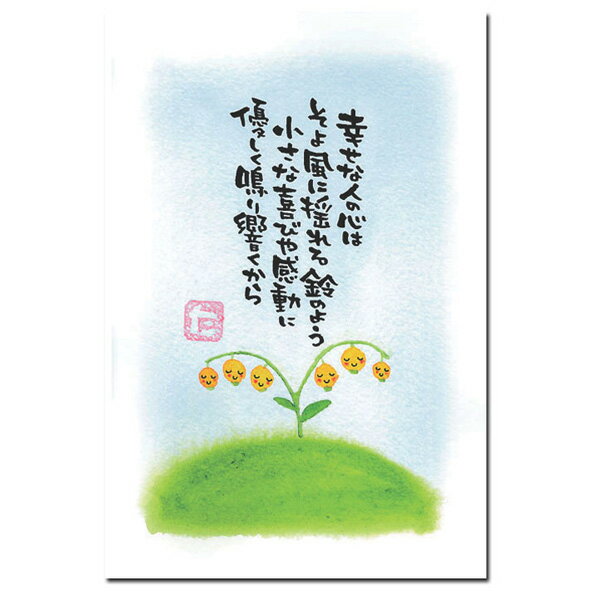 幸せな人の心は
そよ風に揺れる鈴のよう
小さな喜びや感動に
優しく鳴り響くから